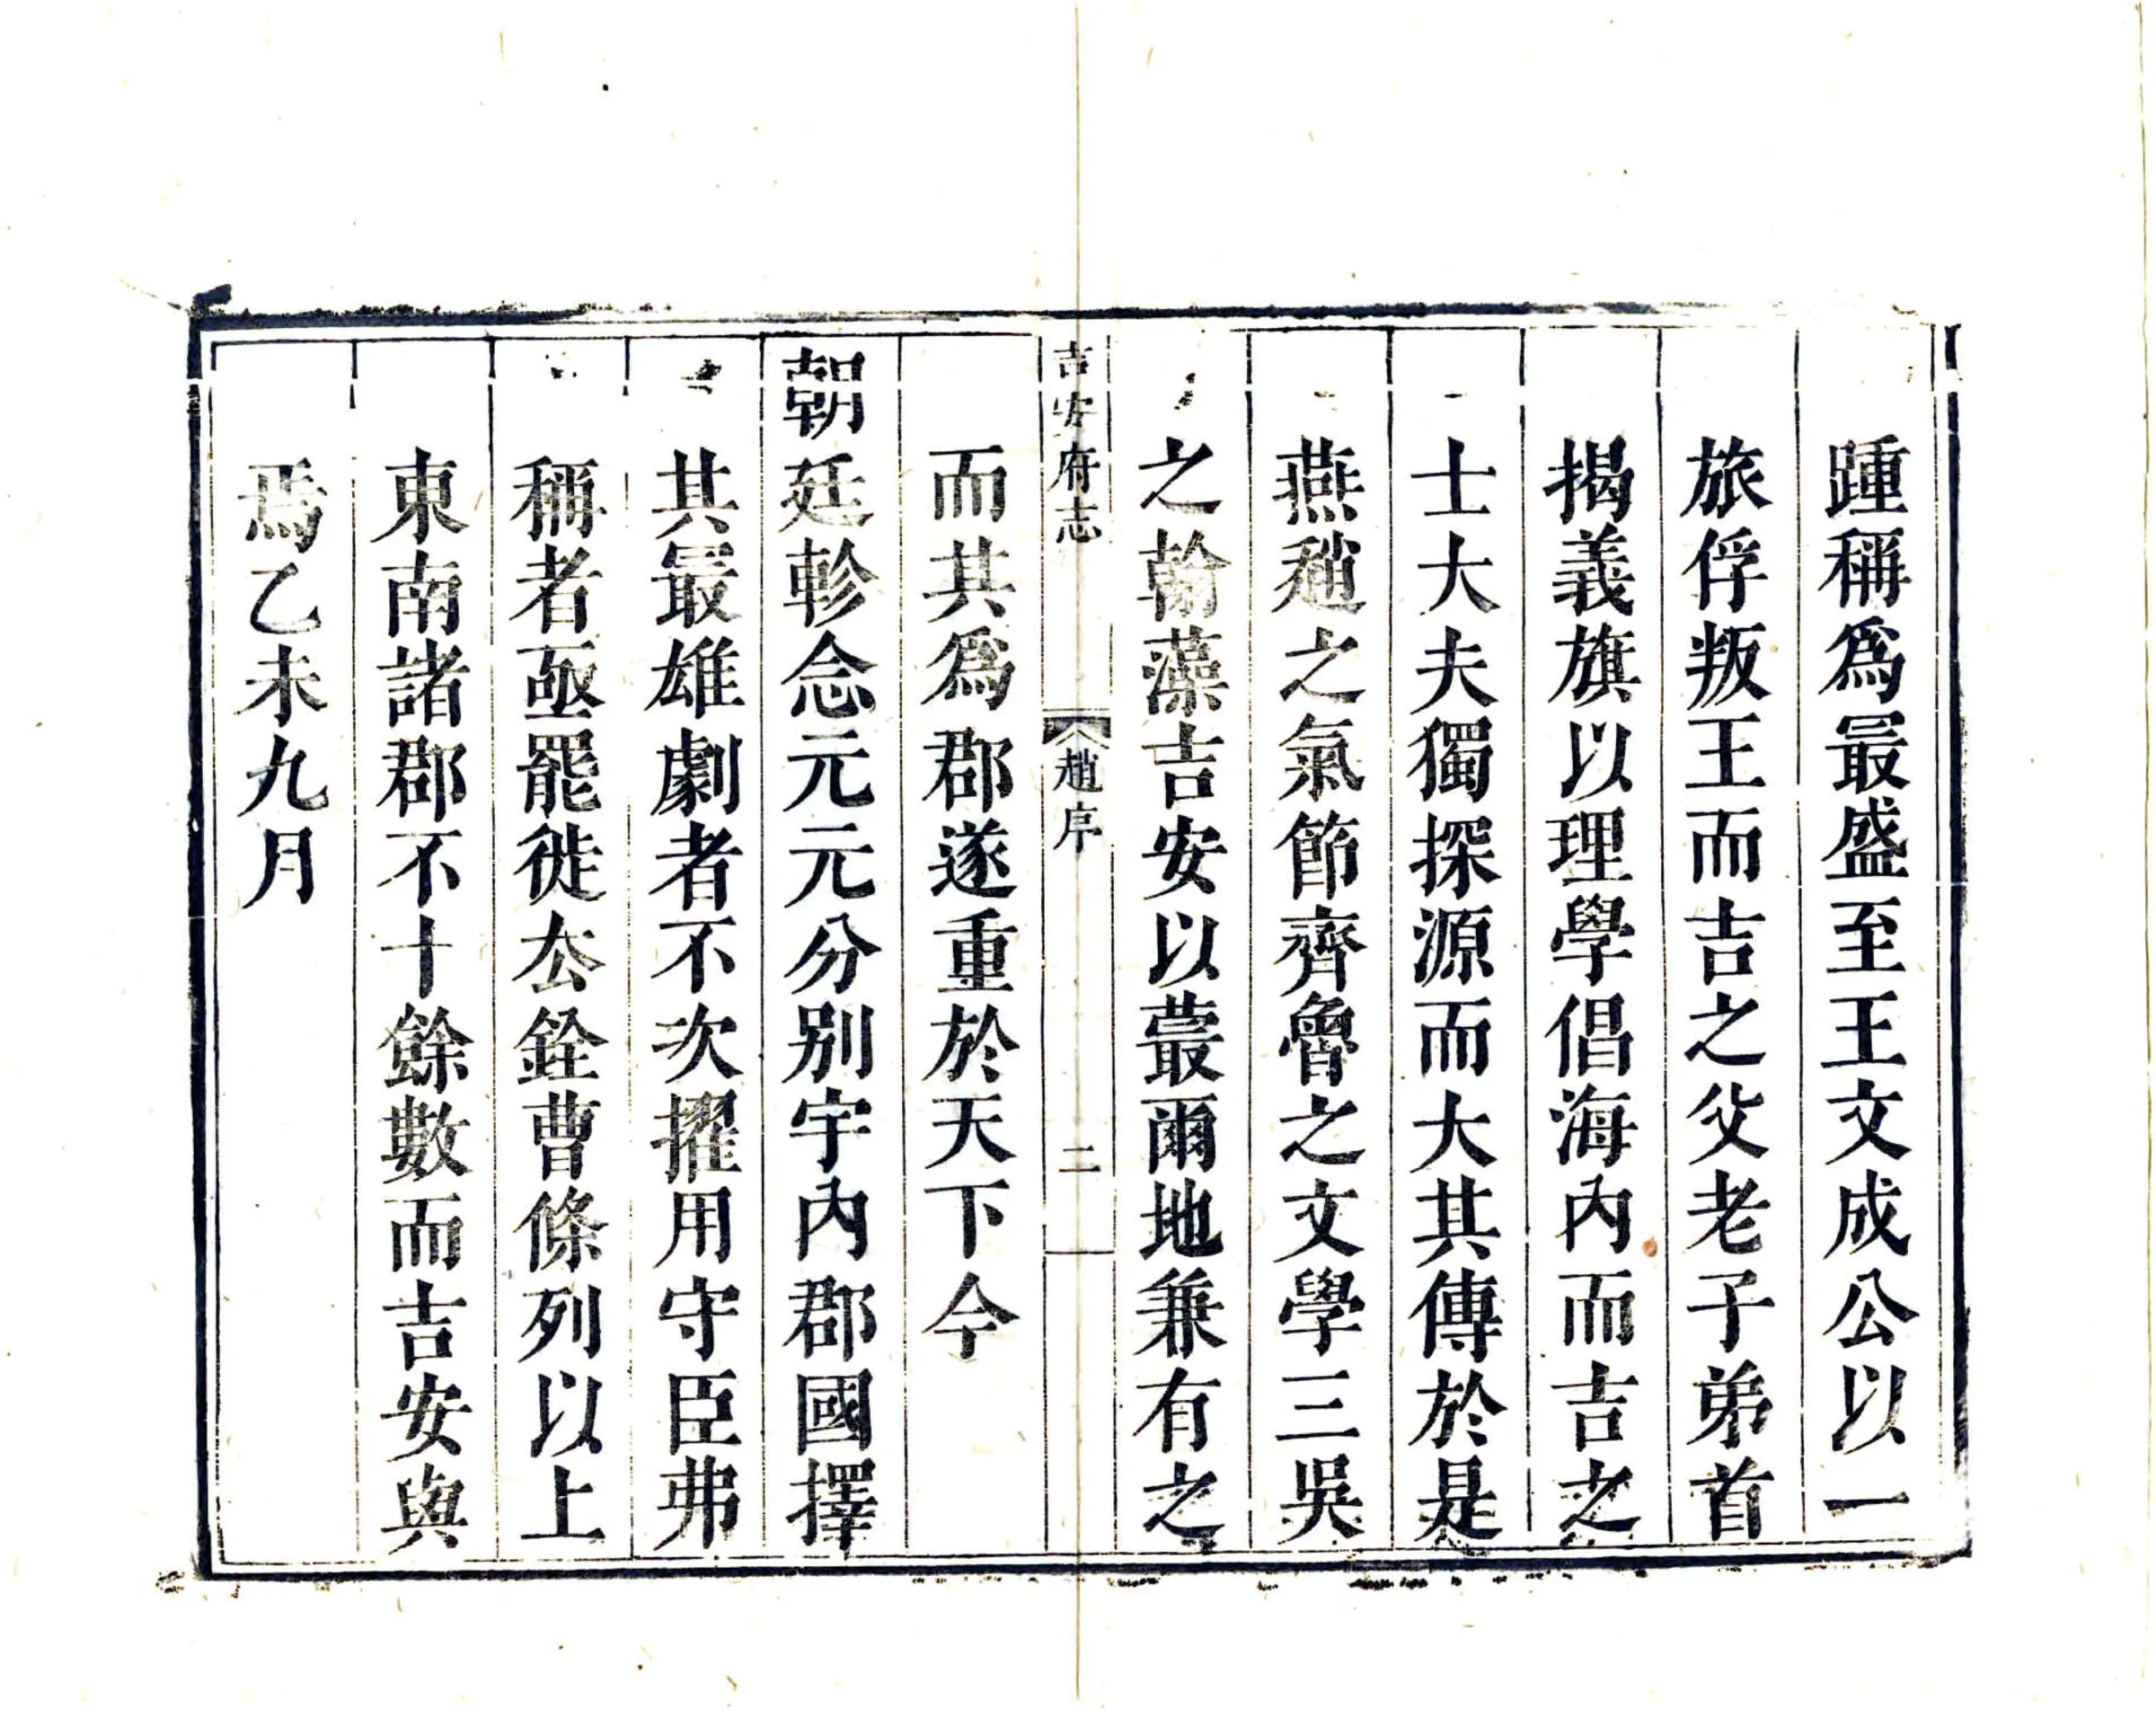 踵稱爲最盛至王文成公以一
旅俘叛王而吉之父老子弟首
揭義旗以理學倡海內而吉之
士大夫獨探源而大其傳於是
燕趙之氣節齊魯之文學三吳
之翰藻吉安以蕞爾地兼有之
吉安府志
趙序
二
而其爲郡遂重於天下今
朝廷軫念元元分别宇內郡國擇
其最雄劇者不次擢用守臣弗
稱者亟罷徙厺銓曹條列以上
東南諸郡不十餘數而吉安與
焉乙未九月